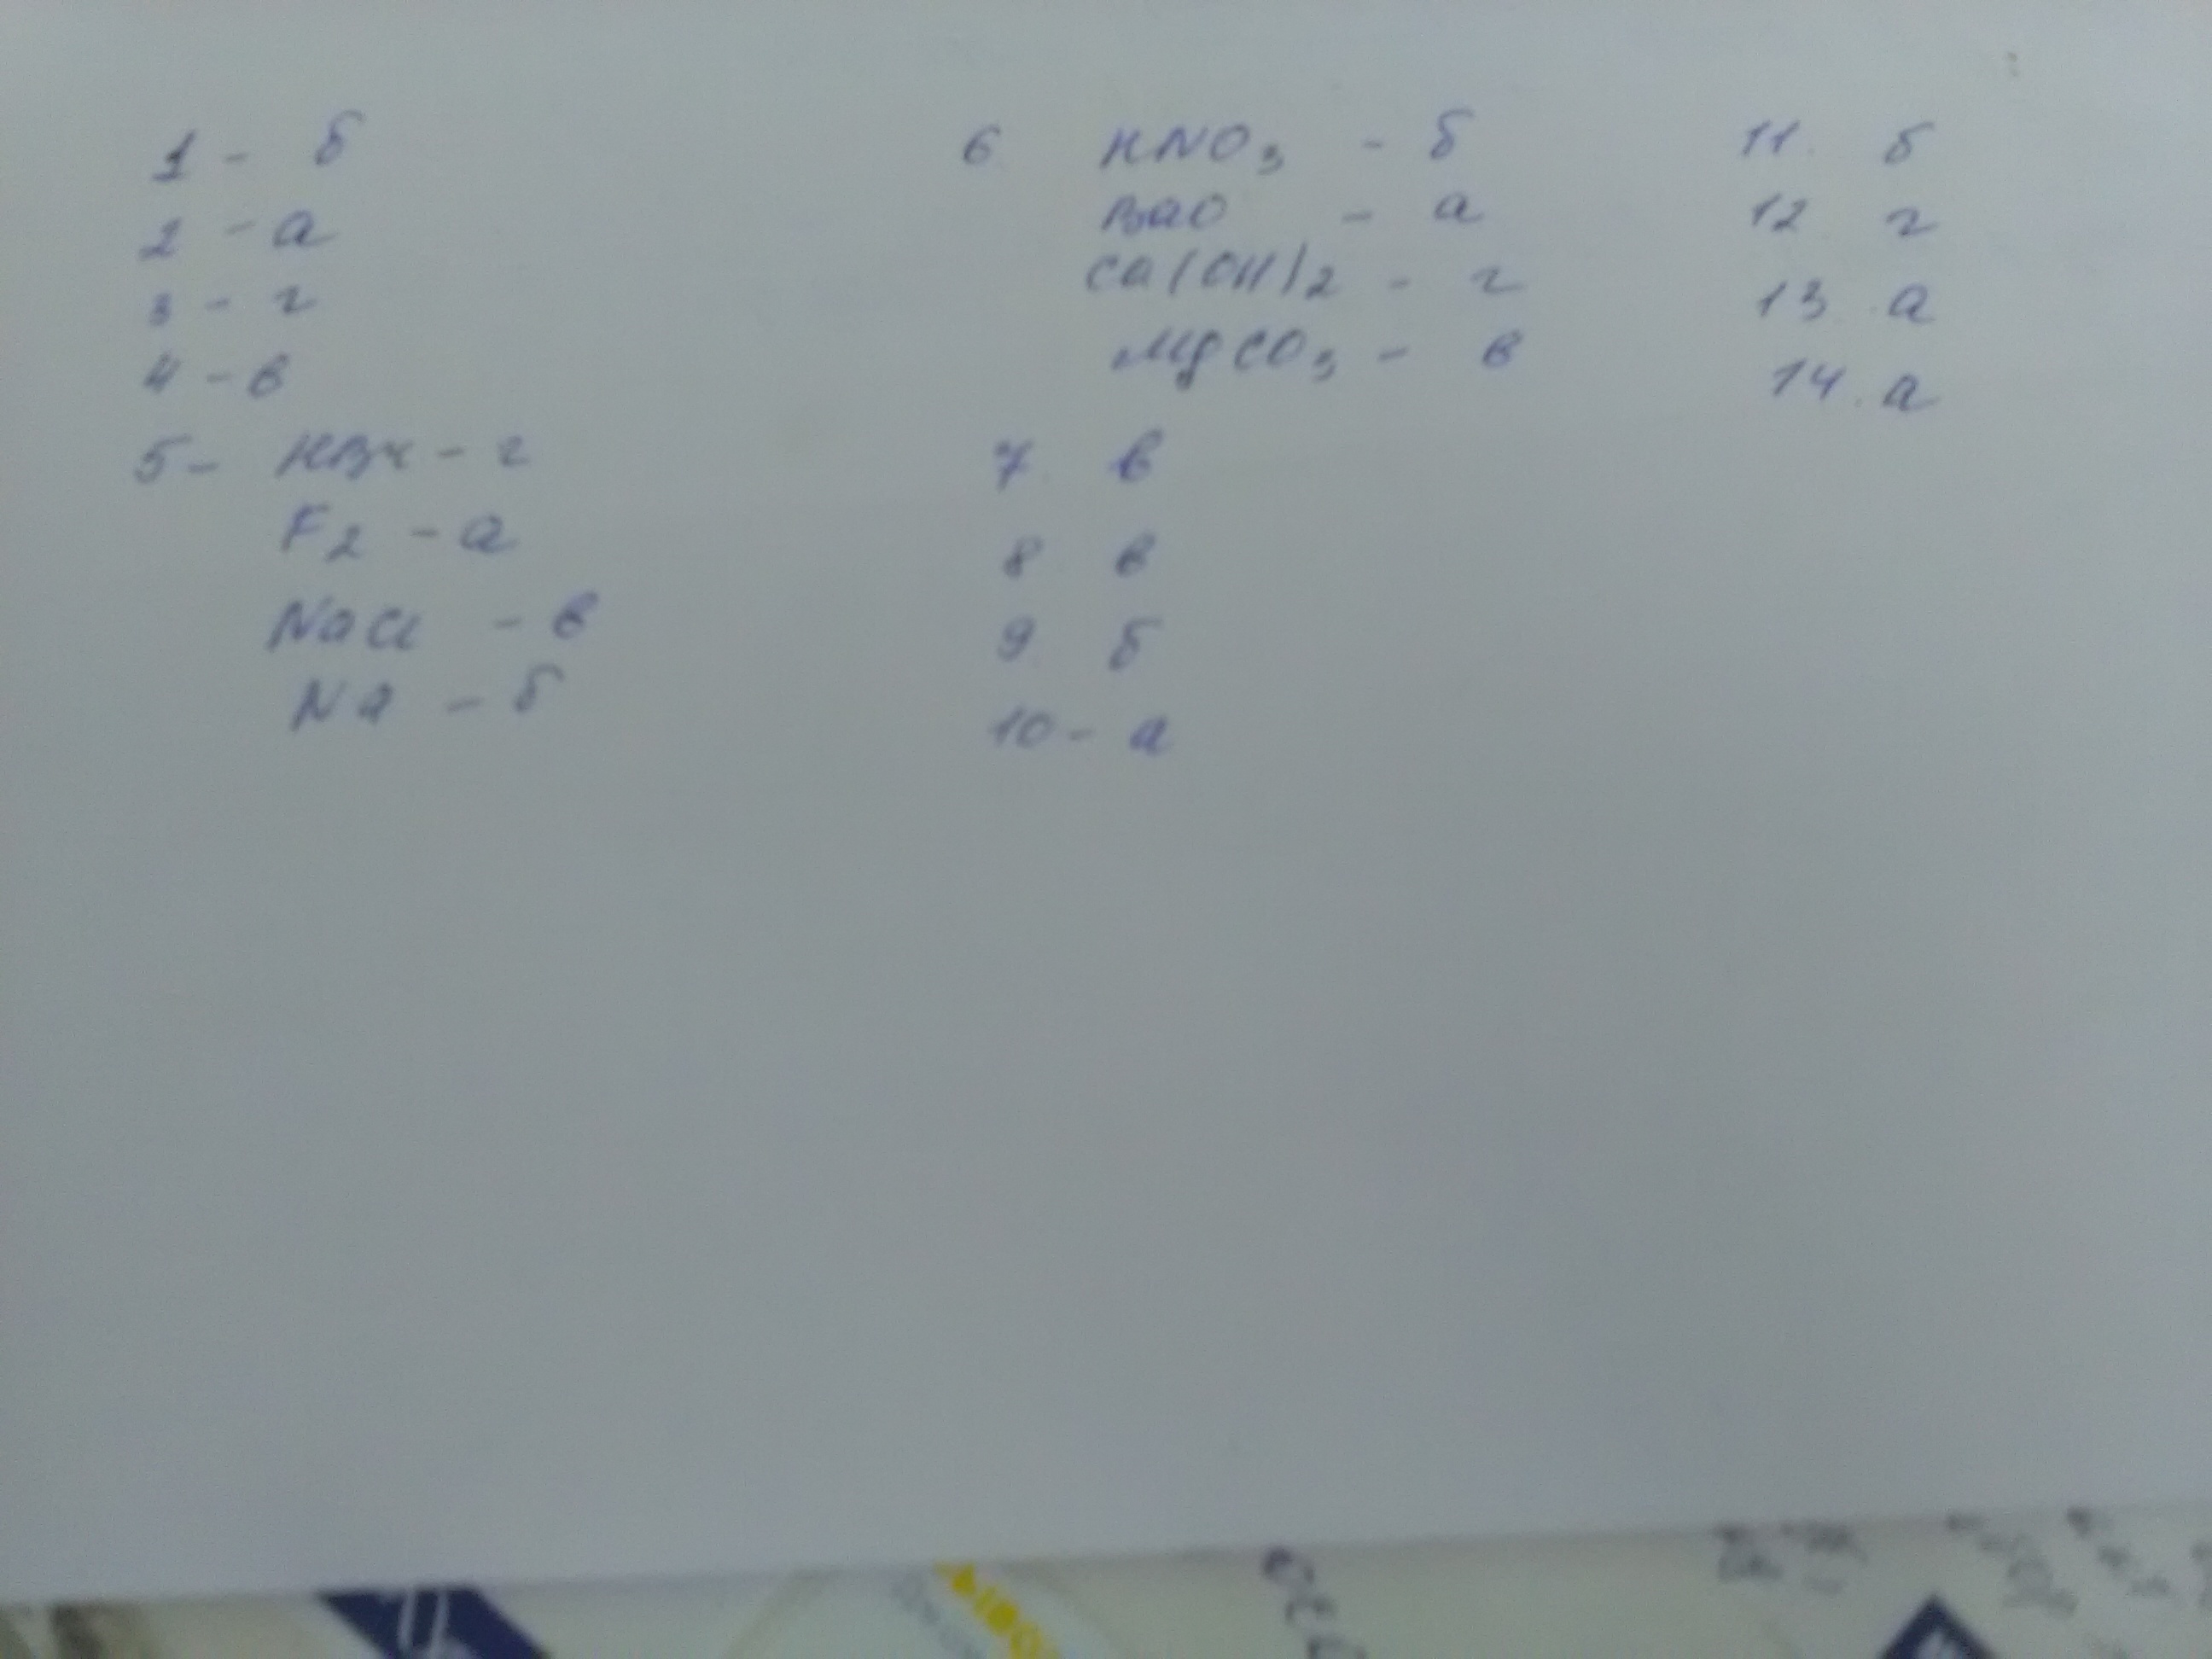 1 - б
2 - а
3 - г
4 - в
5 - HBr - г
F2 - а
NaCl - в
Na - б
6 HNO3 - б
BaO - а
Ca(OH)2 - г
MgCO3 - в
7 в
8 в
9 б
10 - а
11. б
12 г
13 а
14. а